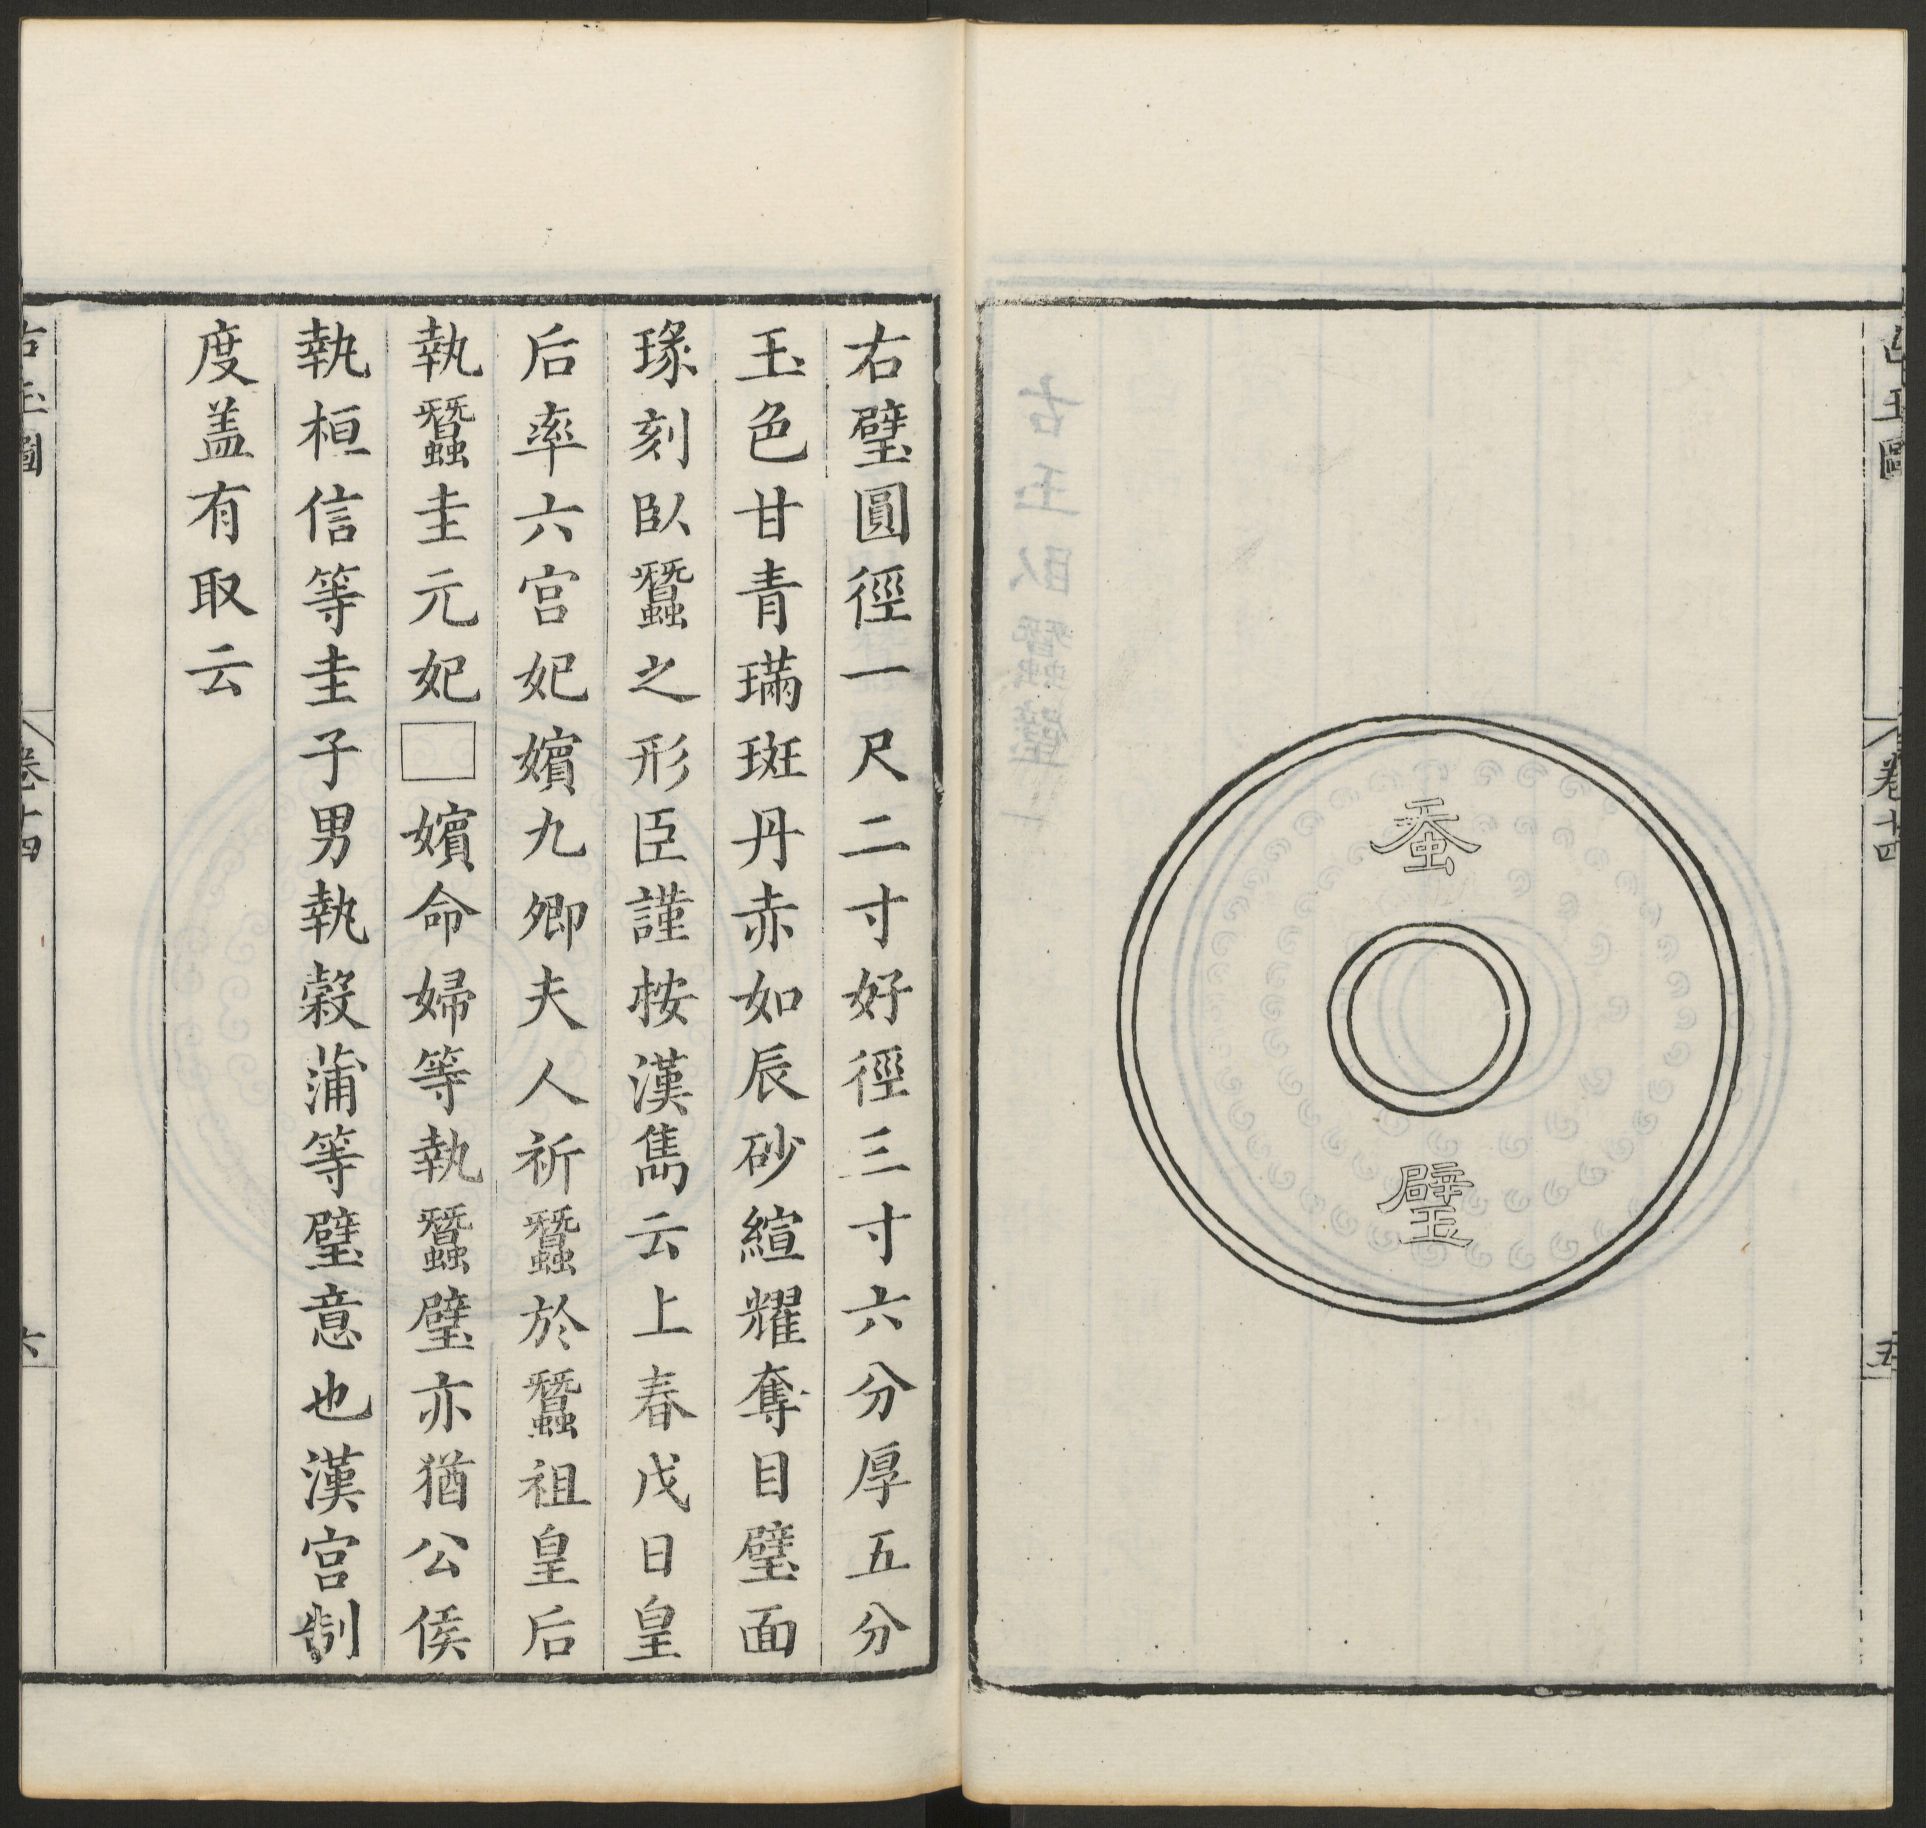 古玉圖
卷十四
五
蚕
璧
右璧圓徑一尺二寸好徑三寸六分厚五分
玉色甘青璊斑丹赤如辰砂縇耀奪目璧面
瑑刻臥蠶之形臣謹按漢雋云上春戊日皇
后率六宮妃嬪九卿夫人祈蠶於蠶祖皇后
執蠶圭元妃□嬪命婦等執蠶璧亦猶公侯
執桓信等圭子男執穀蒲等璧意也漢宮制
度盖有取云
古玉圖
卷十四
六